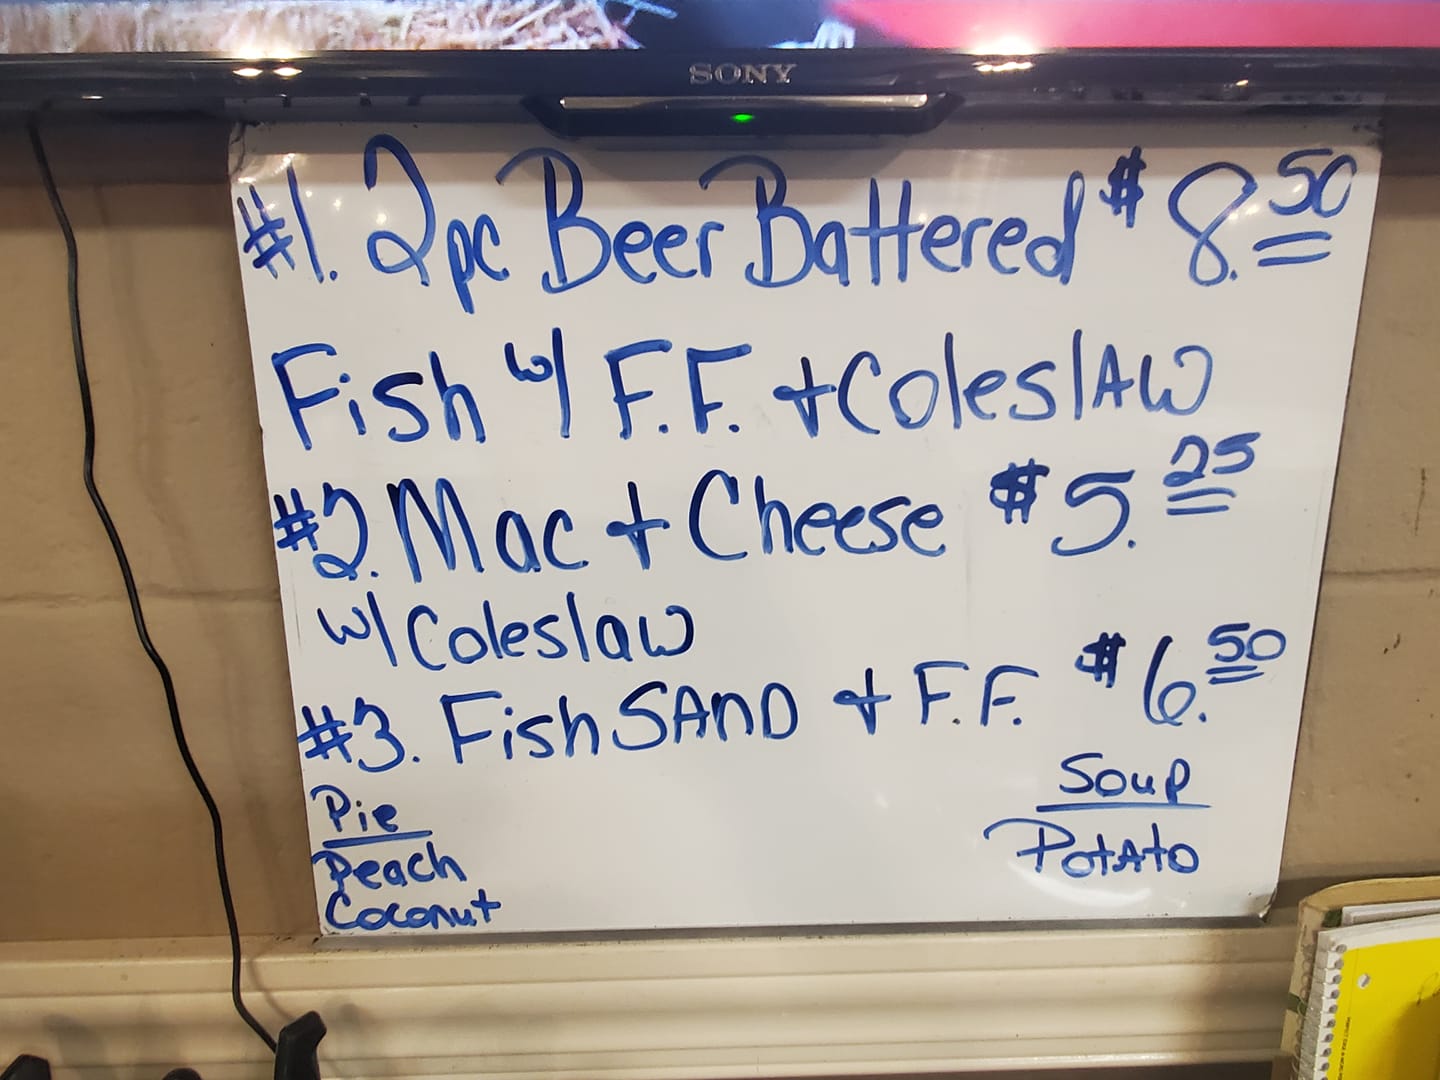 SONY
#1. 2pc Beer Battered $8.50
Fish w/ F.F. + Coleslaw
#2. Mac + Cheese $5.25
w/ Coleslaw
#3. Fish SAnD + F.F. $6.50
Pie
Peach
Coconut
Soup
PotAto